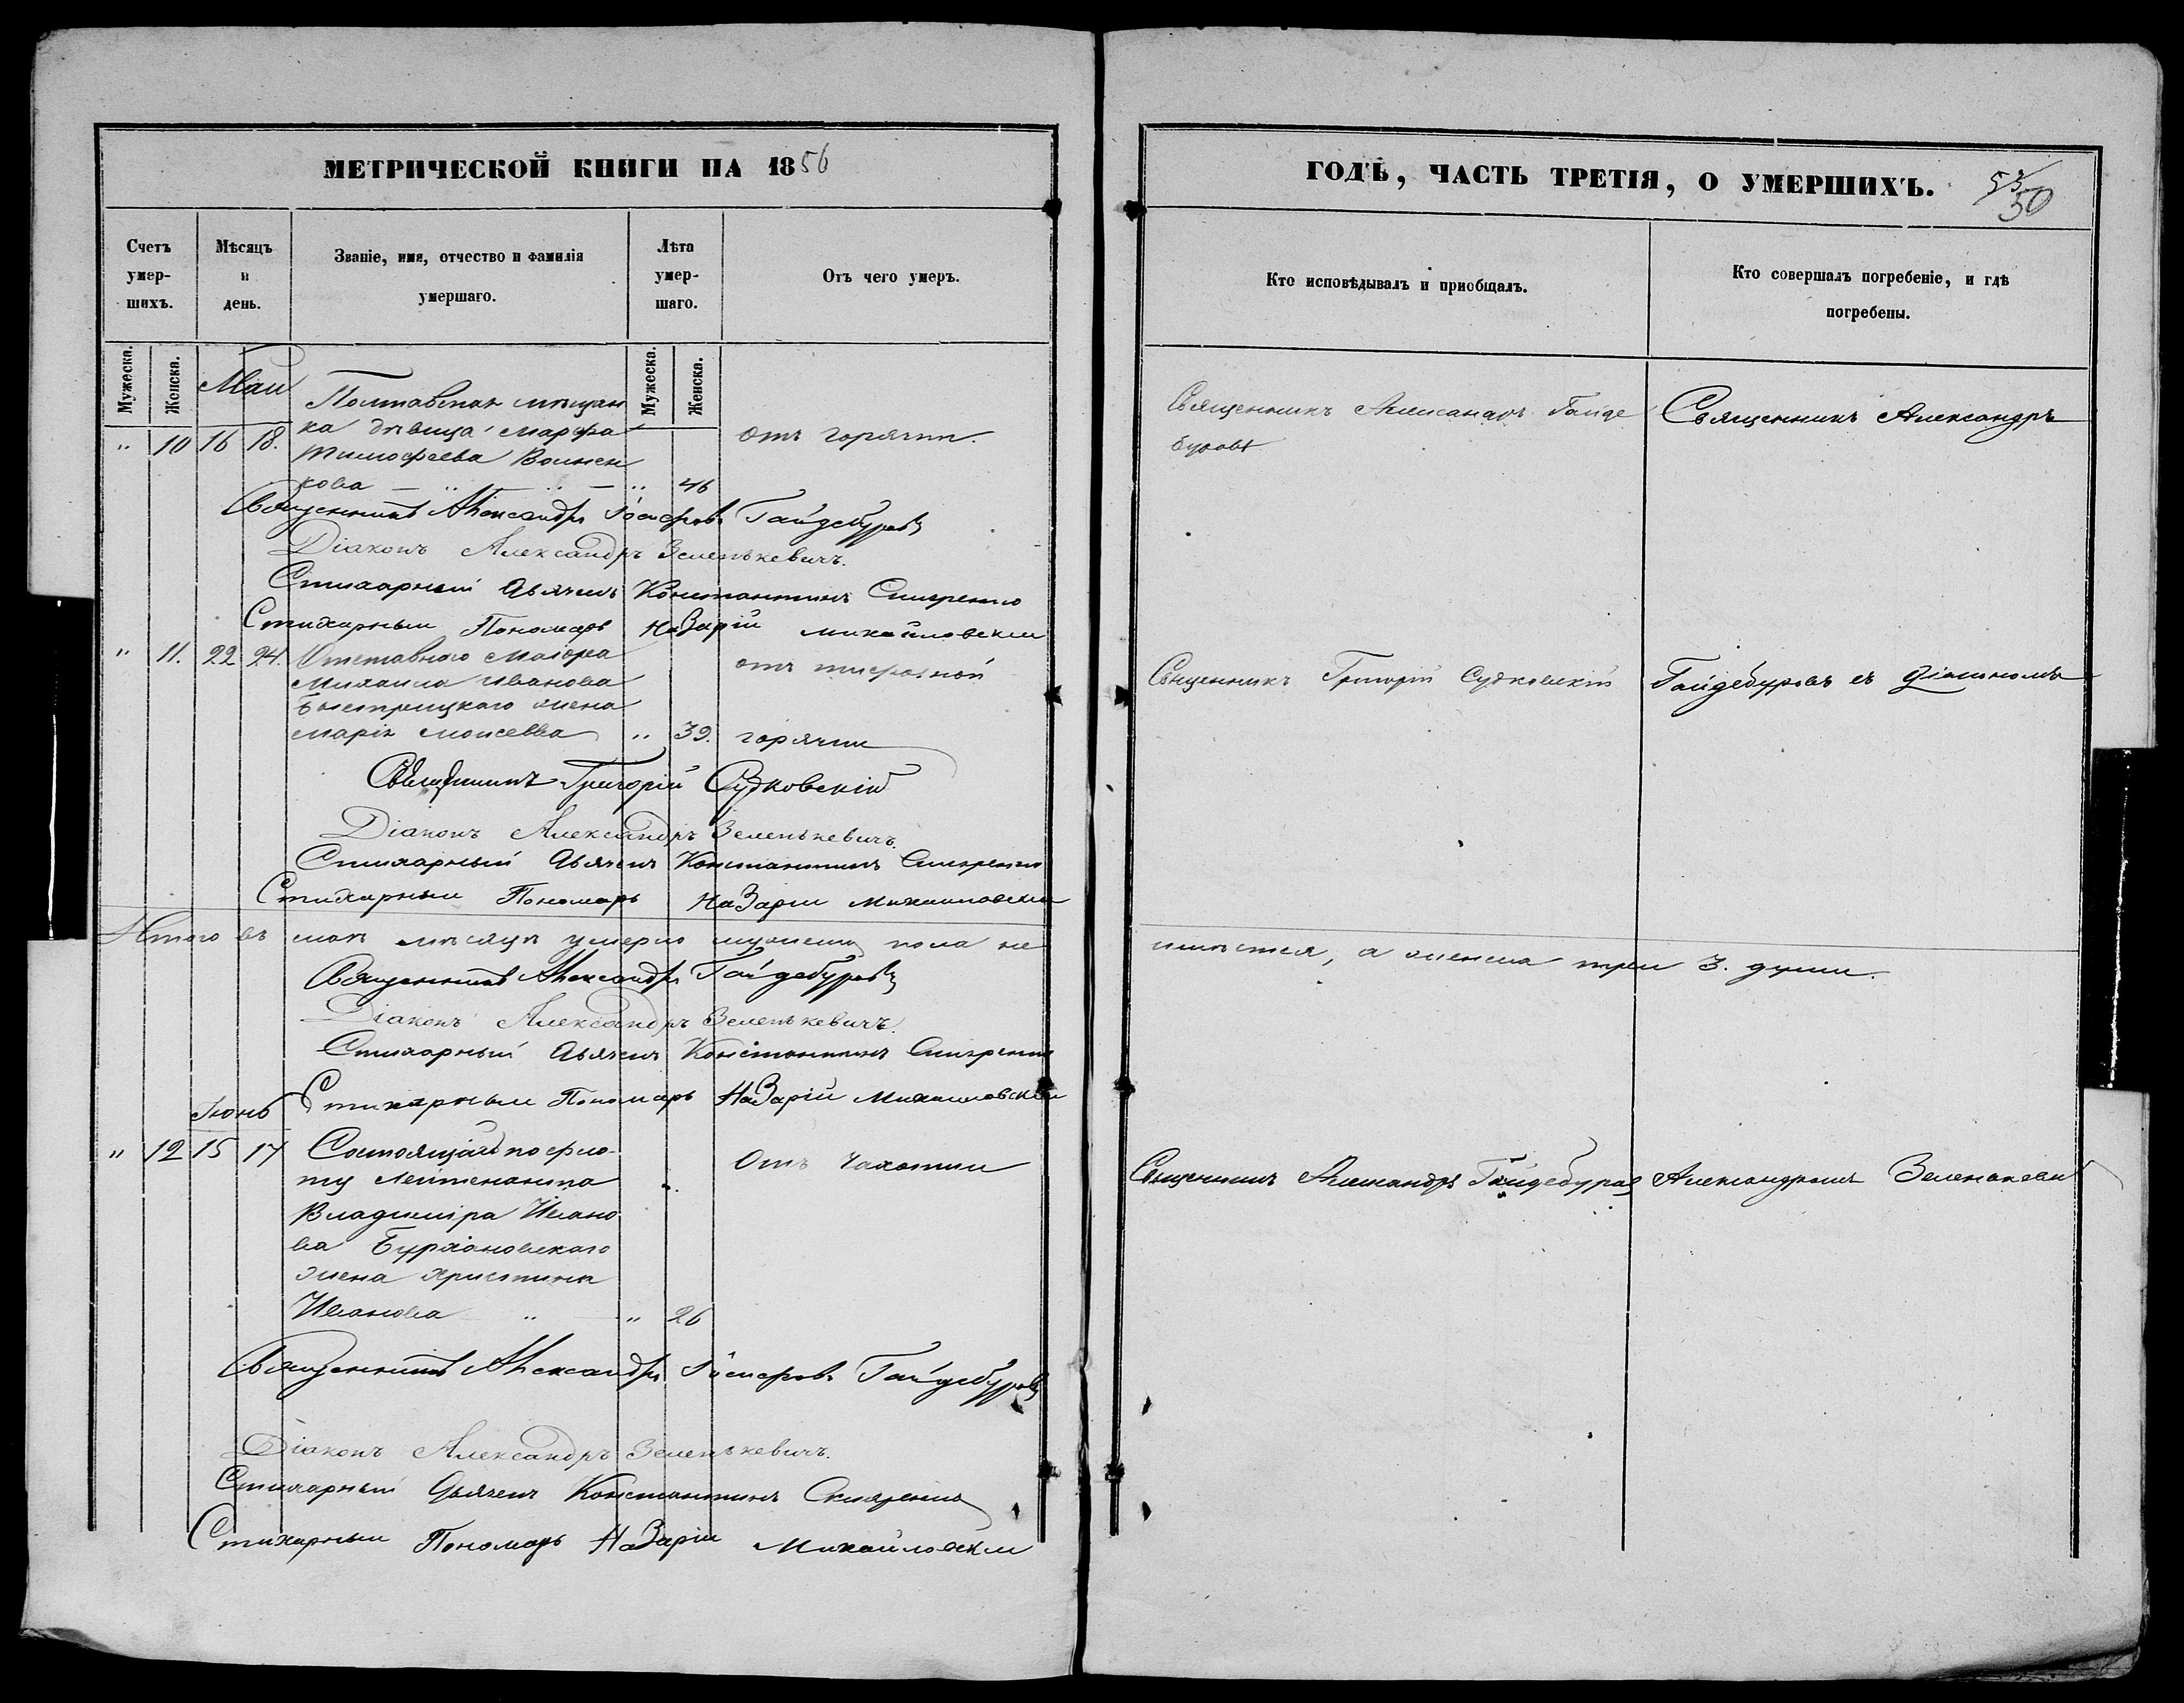 МЕТРИЧЕСКОЙ КНИГИ НА 1856
Счетъ умер-шихъ.
Мѣсяцъ и день.
Званіе, имя, отчество и фамилія умершаго.
Лѣта умер-шаго.
Отъ чего умеръ.
Мужеска. Женска.
Мужеска. Женска.
Маи
Полтавская мѣщан
ка дѣвица Марѳа
" 10 16 18. Тимофеева
кова — " — " 46
отъ горячки.
Священникъ Александръ Гайдебуровъ
Діаконъ Александръ Зеленькевичъ.
Стихарный Дьячекъ Константинъ
Стихарный Пономарь Назарій Михайловскій
" 11. 22 24. Отставнаго Маіора
Михаила Иванова
Быстрицкаго жена
Марія Моисеева " 39.
отъ тифозной
горячки
Священникъ Григорій Судковскій
Діаконъ Александръ Зеленькевичъ.
Стихарный Дьячекъ Константинъ
Стихарный Пономарь Назарій Михайловскій
Итого въ маѣ мѣсяцѣ умерло мужеска пола не
Священникъ Александръ Гайдебуровъ
Діаконъ Александръ Зеленькевичъ.
Стихарный Дьячекъ Константинъ
Стихарный Пономарь Назарій Михайловскій
Іюнь
" 12 15 17 Состоящаго по фло-
ту Лейтенанта
Владиміра Ивано
ва Бурхановскаго
жена Христина
Иванова " " 26
Отъ чахотки
Священникъ Александръ Гайдебуровъ
Діаконъ Александръ Зеленькевичъ.
Стихарный Дьячекъ Константинъ
Стихарный Пономарь Назарій Михайловскій
ГОДЪ, ЧАСТЬ ТРЕТІЯ, О УМЕРШИХЪ.
50
Кто исповѣдывалъ и пріобщалъ.
Кто совершалъ погребеніе, и гдѣ
погребены.
Священникъ Александръ Гайде
буровъ
Священникъ Александръ
Священникъ Григорій Судковскій
Гайдебуровъ съ Діакономъ
имѣется, а женска три 3. души.
Священникъ Александръ Гайдебуровъ
Александромъ Зеленькеви